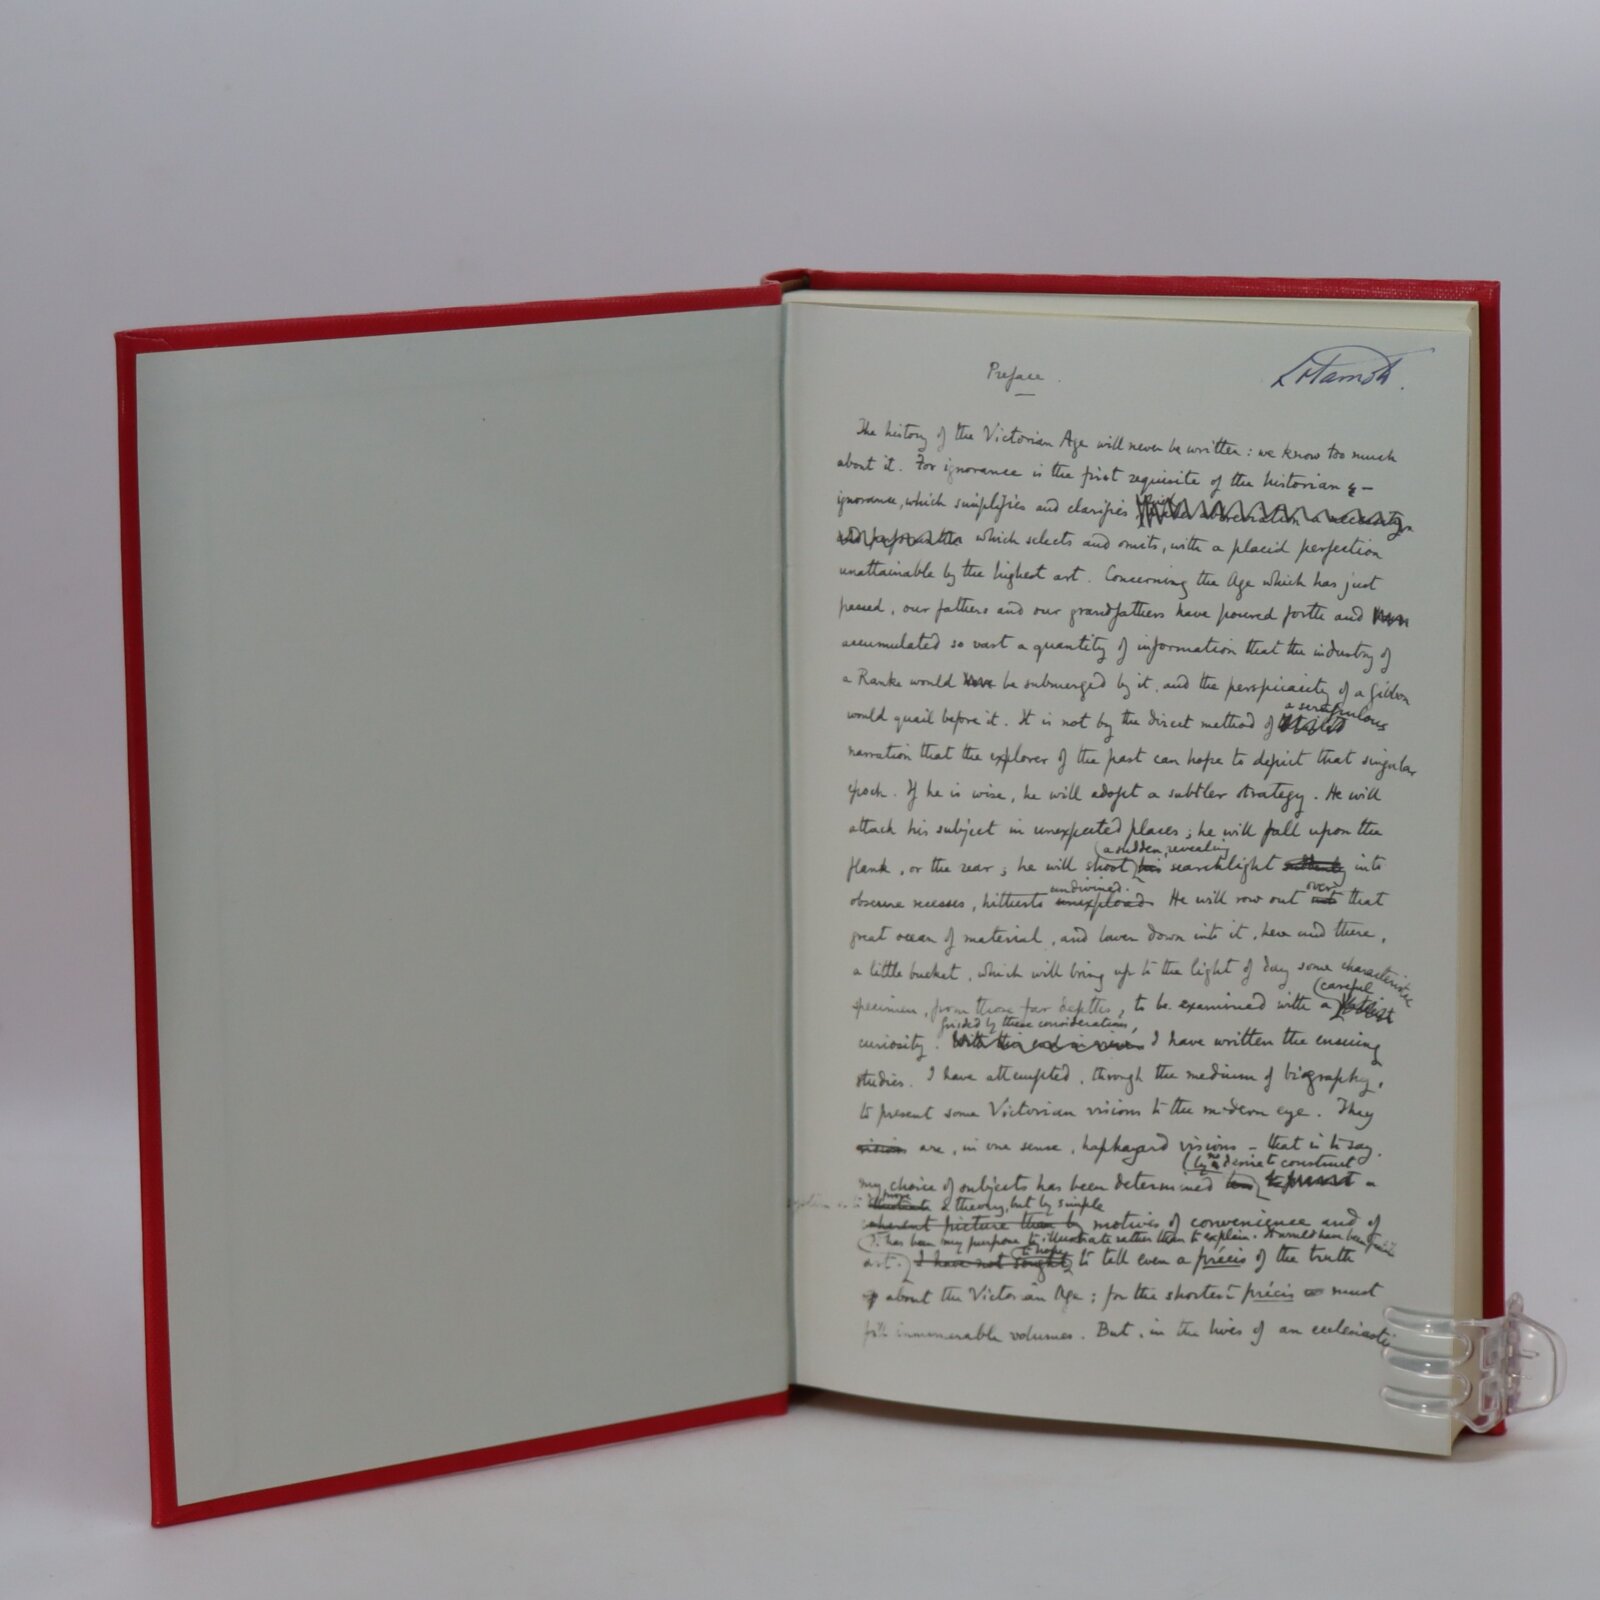 Preface.
The history of the Victorian Age will never be written : we know too much
about it. For ignorance is the first requisite of the historian —
ignorance, which simplifies and clarifies,
which selects and omits, with a placid perfection
unattainable by the highest art. Concerning the Age which has just
passed, our fathers and our grandfathers have poured forth and
accumulated so vast a quantity of information that the industry of
a Ranke would be submerged by it, and the perspicacity of a Gibbon
would quail before it. It is not by the direct method of a scrupulous
narration that the explorer of the past can hope to depict that singular
epoch. If he is wise, he will adopt a subtler strategy. He will
attack his subject in unexpected places ; he will fall upon the
flank, or the rear ; he will shoot a sudden, revealing searchlight into
obscure recesses, hitherto undivined. He will row out over that
great ocean of material, and lower down into it, here and there,
a little bucket, which will bring up to the light of day some characteristic
specimen, from those far depths, to be examined with a careful
curiosity. Guided by these considerations, I have written the ensuing
studies. I have attempted, through the medium of biography,
to present some Victorian visions to the modern eye. They
visions are, in one sense, haphazard visions – that is to say,
my choice of subjects has been determined by no desire to construct
a theory, but by simple
coherent picture than by motives of convenience and of
It has been my purpose to illustrate rather than to explain. It would have been futile
art. I have not sought to hope to tell even a précis of the truth
about the Victorian Age ; for the shortest précis must
fill innumerable volumes. But, in the lives of an ecclesiastic